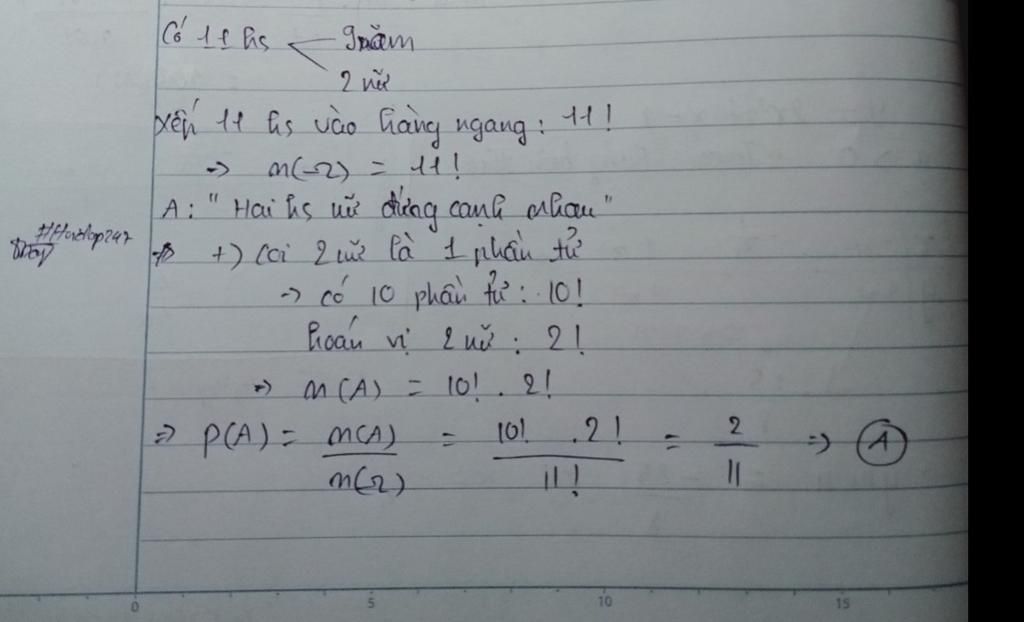 Có 11 hs 9 nam
2 nữ
xếp 11 hs vào hàng ngang: 11!
→ n(Ω) = 11!
A: " Hai hs nữ đứng cạnh nhau"
+) Coi 2 nữ là 1 phần tử
→ có 10 phần tử: 10!
hoán vị 2 nữ: 2!
→ n(A) = 10! . 2!
⇒ P(A) = n(A) / n(Ω) = 10! . 2! / 11! = 2 / 11 ⇒ A
0 5 10 15